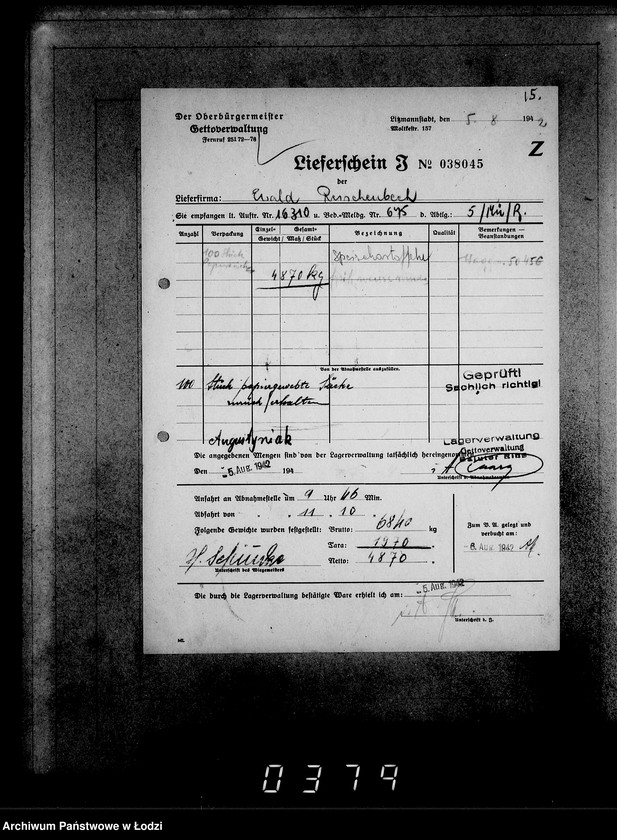 15.
Der Oberbürgermeister
Gettoverwaltung
Fernruf 251 72—76
Litzmannstadt, den 5. 8 1942
Moltkestr. 157
Z
Lieferschein J № 038045
der
Lieferfirma: Ewald
Sie empfangen lt. Auftr. Nr. 16310 u. Bed.-Meldg. Nr. 675 d. Abtlg.: 5/
Anzahl Verpackung Einzel- Gesamt- Gewicht / Maß / Stück Bezeichnung Qualität Bemerkungen — Beanstandungen
100 Stück Speisekartoffeln
4870 kg
Von der Abnahmestelle auszufüllen.
100 Stück papiergewebte Säcke
zurück erhalten
Geprüft!
Sachlich richtig!
Augustyniak
Lagerverwaltung
Gettoverwaltung
Die angegebenen Mengen sind von der Lagerverwaltung tatsächlich hereingenommen
Den 5. Aug. 1942 194
Unterschrift d. Abnahmebeamten
Anfahrt an Abnahmestelle um 9 Uhr 46 Min.
Abfahrt von " " 11 " 10 "
Folgende Gewichte wurden festgestellt: Brutto: 6840 kg
Tara: 1970 "
Netto: 4870 "
Unterschrift des Wiegemeisters
Zum B. A. gelegt und
verbucht am:
6. Aug. 1942
Die durch die Lagerverwaltung bestätigte Ware erhielt ich am: 5. Aug. 1942
0379
Archiwum Państwowe w Łodzi